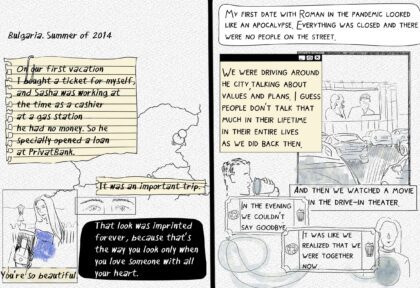 Bulgaria. Summer of 2014
On our first vacation
I bought a ticket for myself,
and Sasha was working at
the time as a cashier
at a gas station
he had no money. So he
specially opened a loan
at PrivatBank.
It was an important trip.
You're so beautiful
That look was imprinted
forever, because that's
the way you look only when
you love someone with all
your heart.
My first date with Roman in the pandemic looked
like an apocalypse. Everything was closed and there
were no people on the street.
We were driving around
he city, talking about
values and plans. I guess
people don't talk that
much in their lifetime
in their entire lives
as we did back then.
And then we watched a movie
in the drive-in theater.
In the evening
we couldn't
say goodbye
It was like we
realized that we
were together
now.